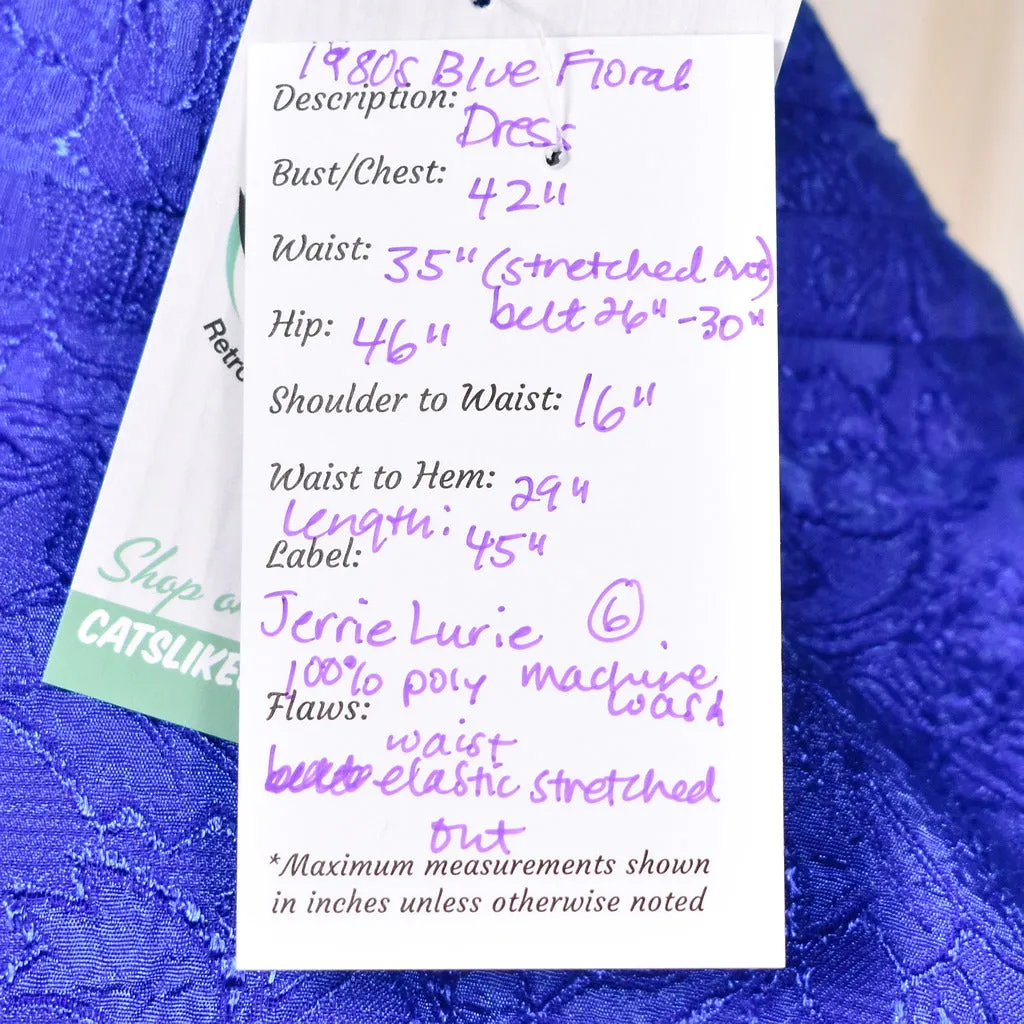 1980s Blue Floral
Description:
Dress
Bust/Chest: 42"
Waist: 35" (stretched out)
belt 26" - 30"
Hip: 46"
Shoulder to Waist: 16"
Waist to Hem: 29"
Length: 45"
Label:
Jerrie Lurie 6.
100% poly machine
wash
Flaws:
waist
elastic stretched
out
*Maximum measurements shown
in inches unless otherwise noted
Retro
Shop o
CATSLIKE